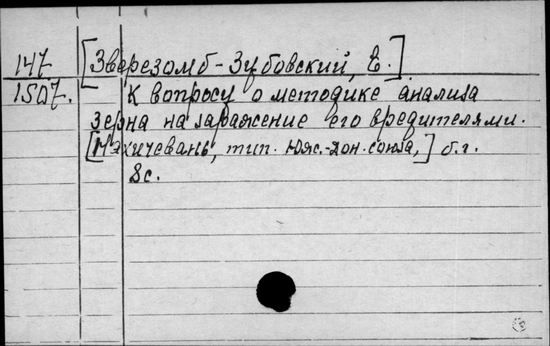 147
1507.
[Зверезомб-Зубовский, Е.]
К вопросу о методике анализа
зерна на заражение его вредителями.
[Нахичевань, тип. Юж.-Дон. союза,] б.г.
8с.